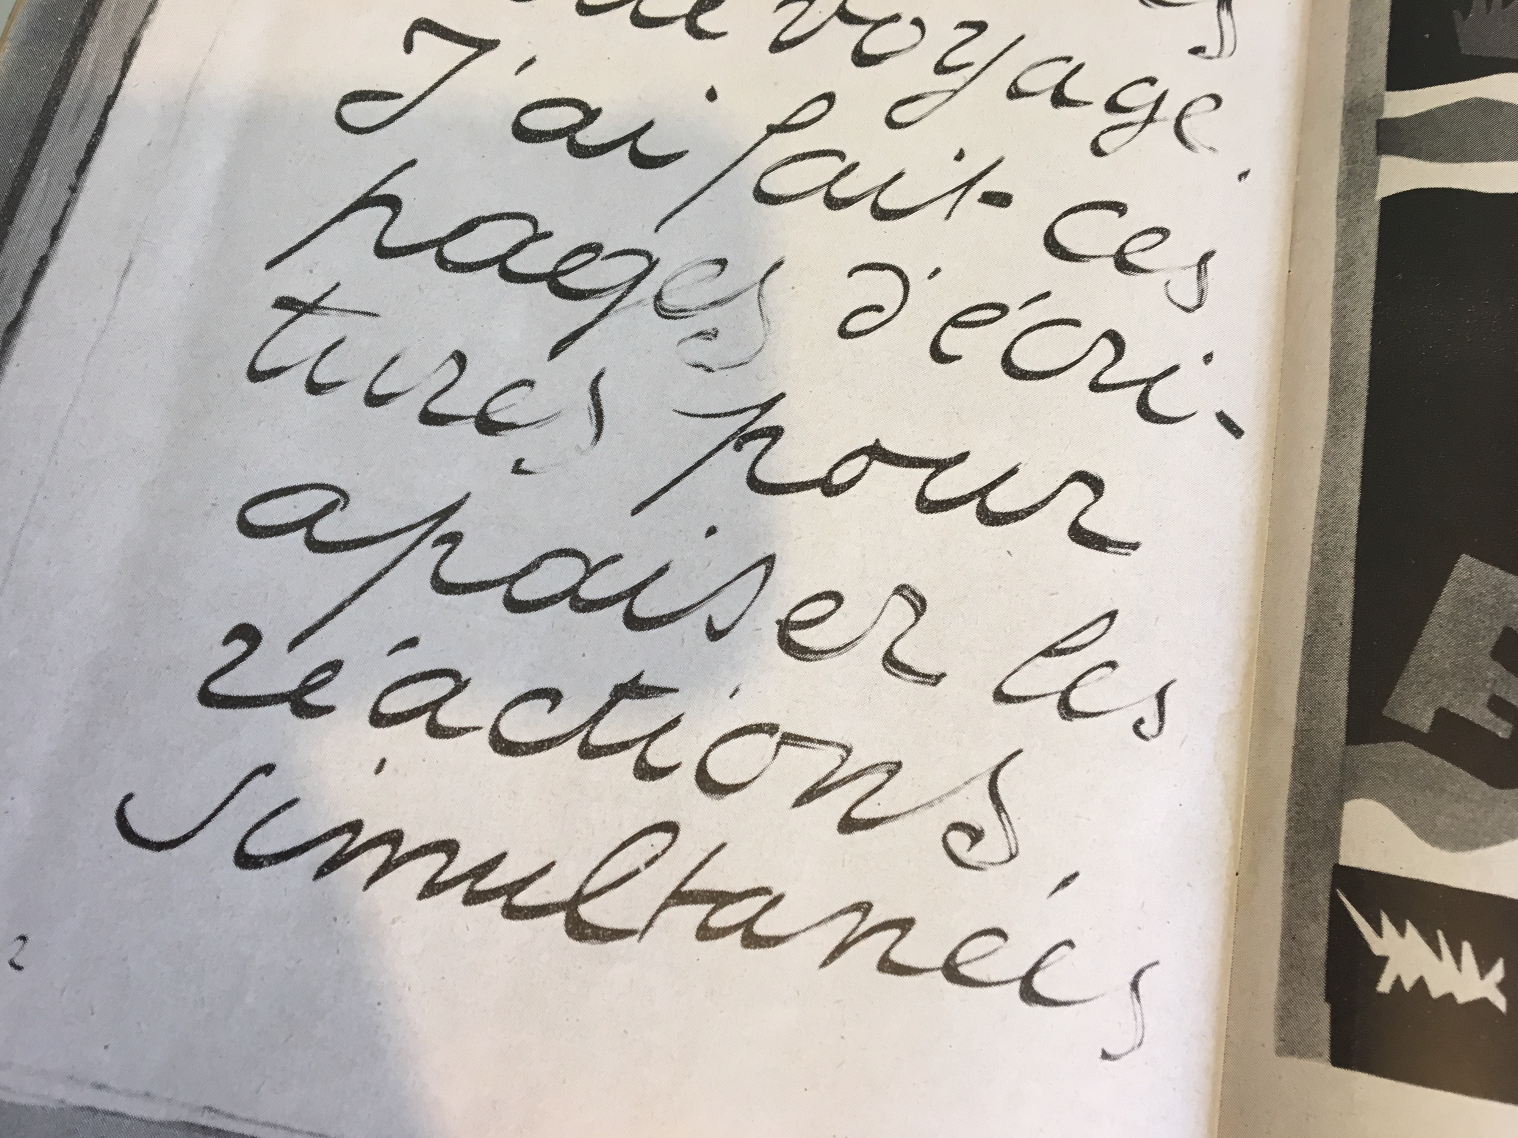 de voyage.
J'ai fait ces
pages d'écri-
tures pour
apaiser les
réactions
simultanées
2
E